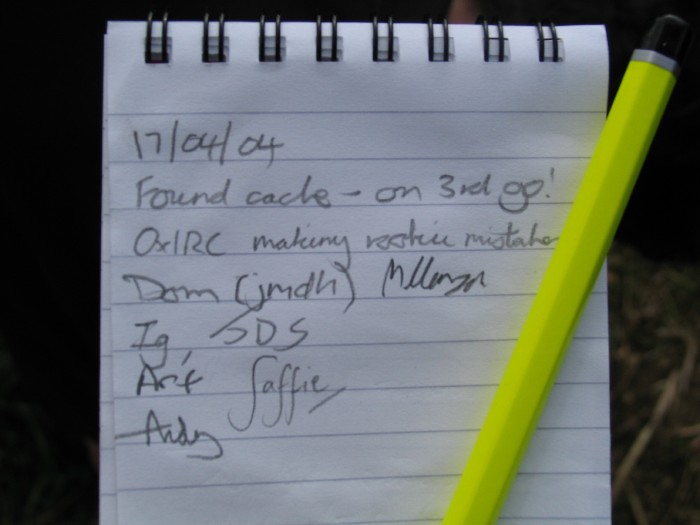 17/04/04
Found cache - on 3rd go!
OxIRC making rookie mistakes
Dom (jmdh)
Ig, SDS
Arf Saffie
Andy